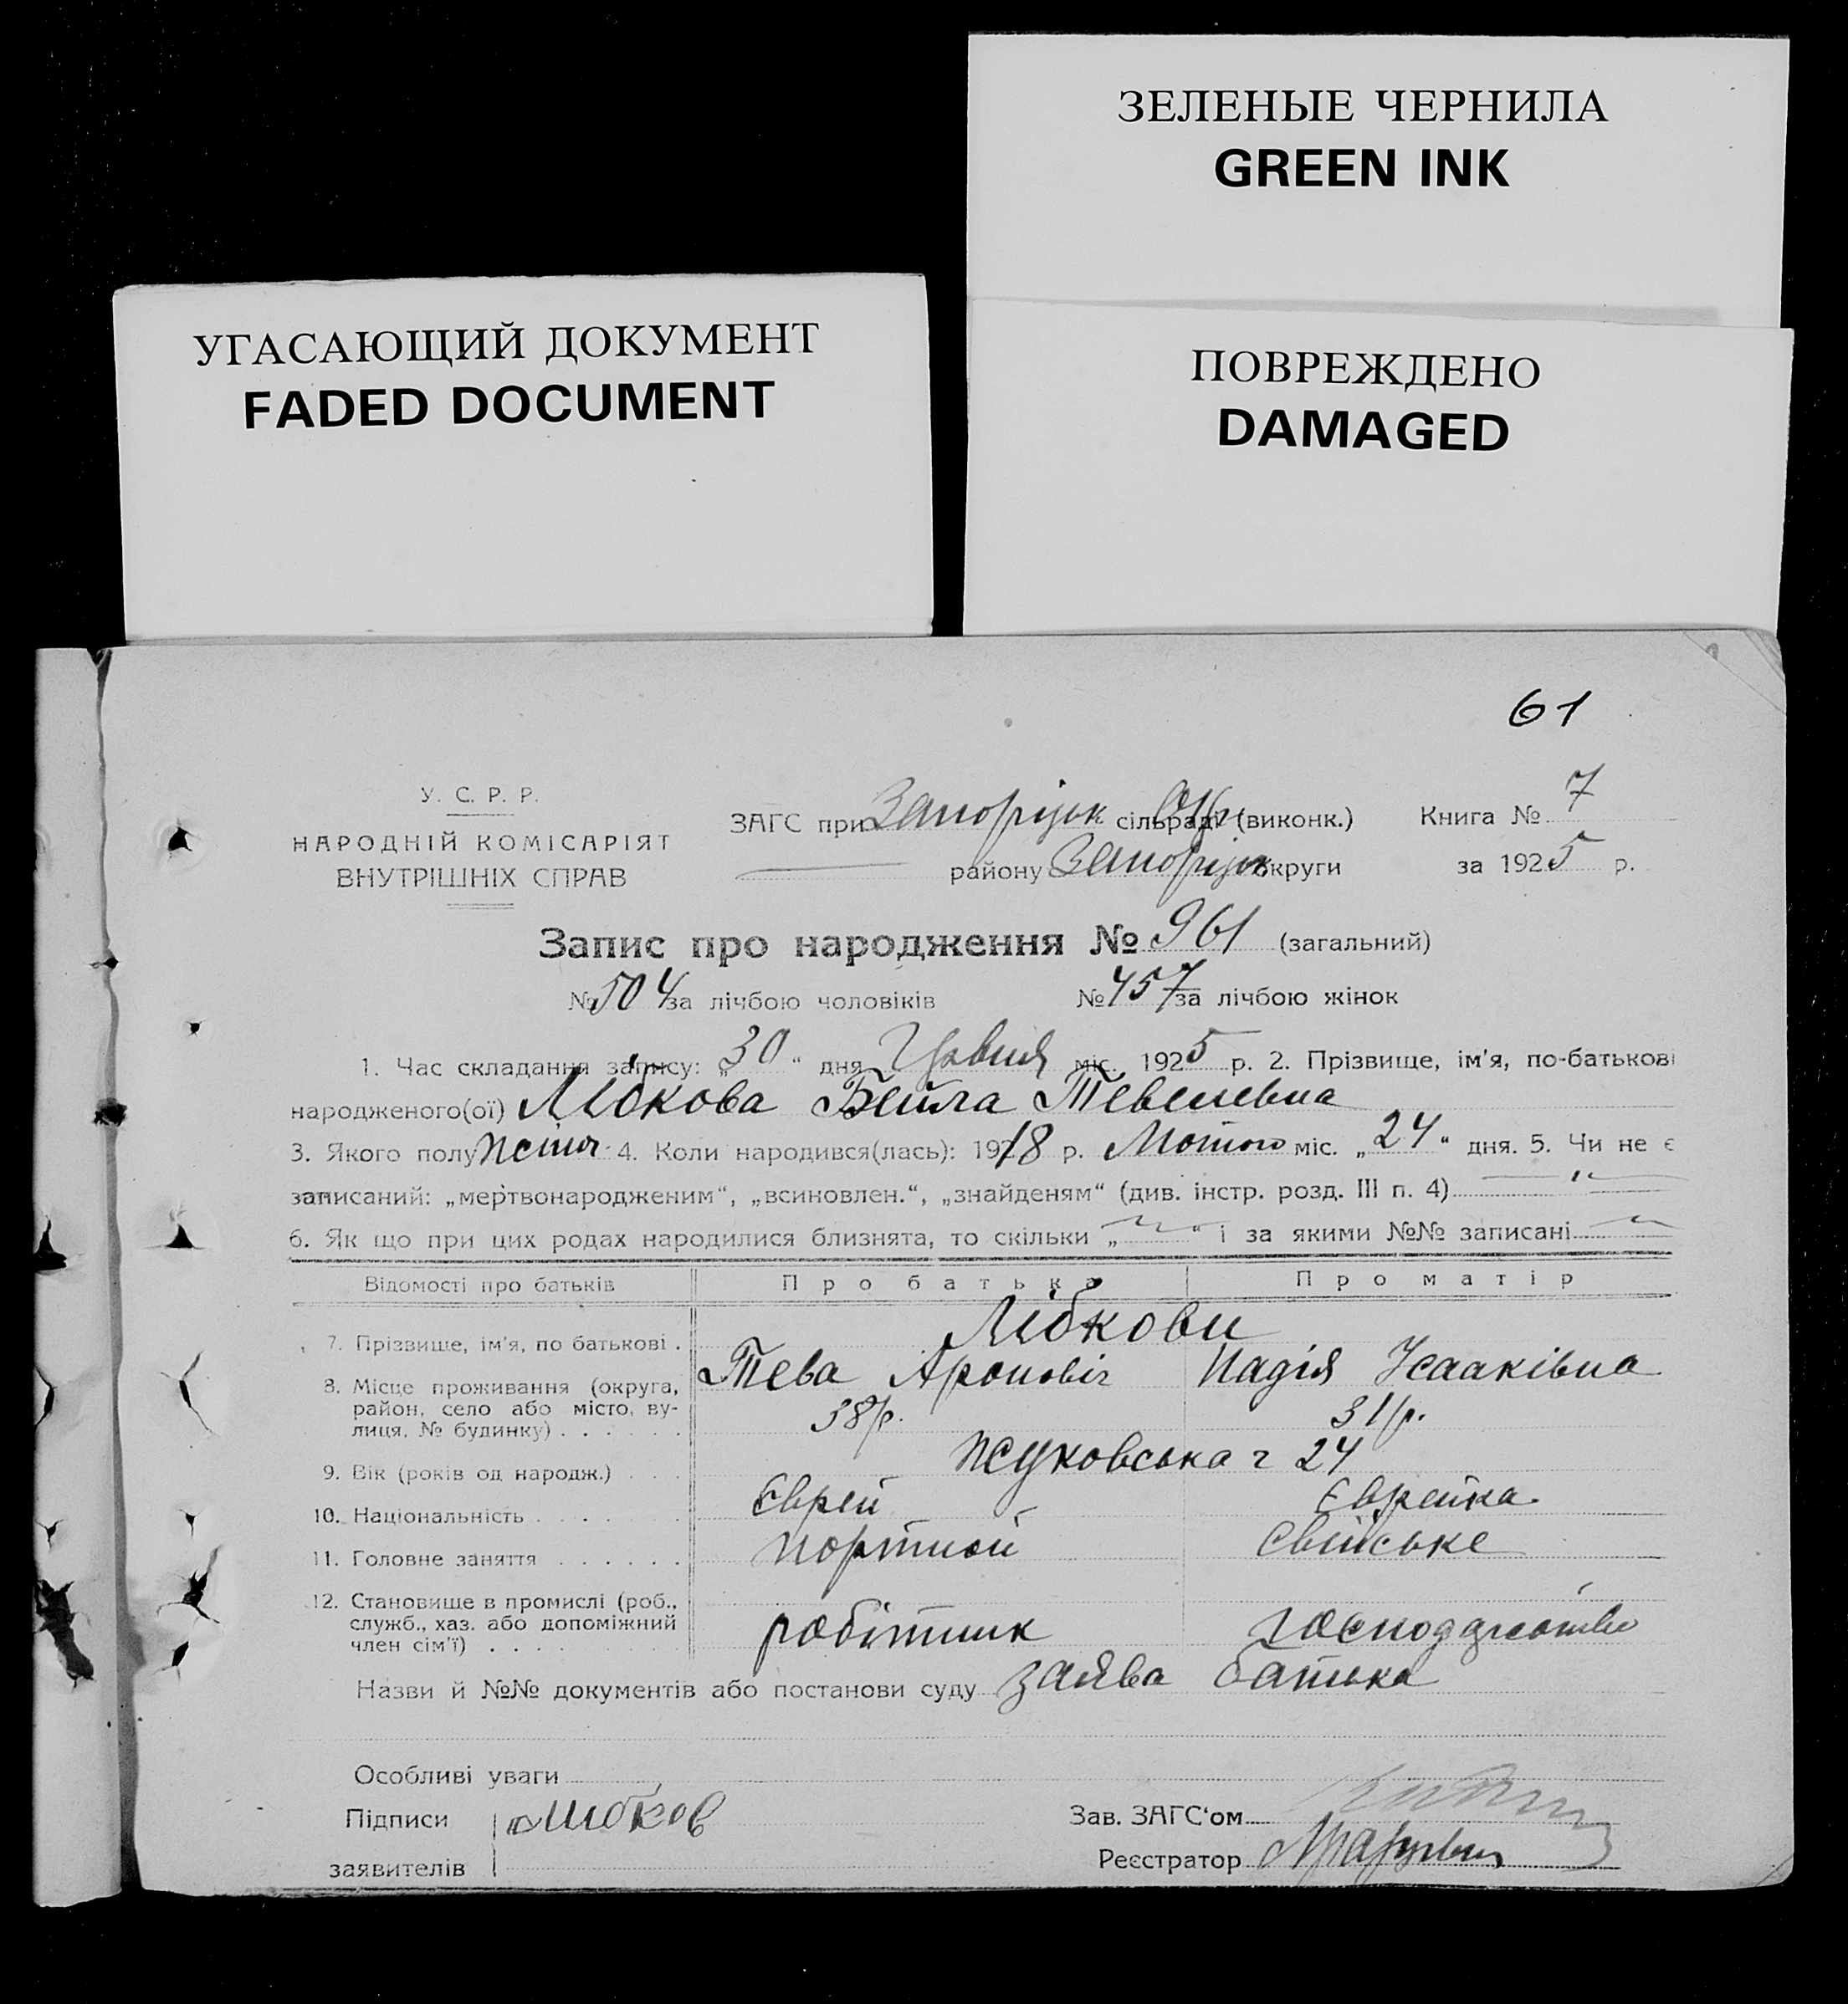 ЗЕЛЕНЫЕ ЧЕРНИЛА
GREEN INK
УГАСАЮЩИЙ ДОКУМЕНТ
FADED DOCUMENT
ПОВРЕЖДЕНО
DAMAGED
61
У. С. Р. Р.
НАРОДНІЙ КОМІСАРІЯТ
ВНУТРІШНІХ СПРАВ
ЗАГС при Запоріжськ сільраді (виконк.) Книга № 7
району Запоріжськ округи за 1925 р.
Запис про народження № 961 (загальний)
№ 504 за лічбою чоловіків № 457 за лічбою жінок
1. Час складання запису: „30“ дня Травня міс. 1925 р. 2. Прізвище, ім'я, по-батькові
народженого(ої) Лібкова Бейла Тевелевна
3. Якого полу жіноч. 4. Коли народився(лась): 1918 р. Лютого міс. „24“ дня. 5. Чи не є
записаний: „мертвонародженим“, „всиновлен.“, „знайденям“ (див. інстр. розд. III п. 4) — " —
6. Як що при цих родах народилися близнята, то скільки „ “ і за якими №№ записані
Відомості про батьків Про батька Про матір
7. Прізвище, ім'я, по батькові . Лібкови
Тева Аронович Надія Ісааківна
8. Місце проживання (округа, район, село або місто, вулиця, № будинку) . . . . . . 38 р. 31 р.
9. Вік (років од народж.) . . . Жуковська ч 24
10. Національність . . . . . Єврей Єврейка.
11. Головне заняття . . . . . . портной Свійське
12. Становище в промислі (роб., служб., хаз. або допоміжний член сім'ї) . . . . робітник господарство
Назви й №№ документів або постанови суду заява батька
Особливі уваги
Підписи Либков Зав. ЗАГС'ом
заявителів Реєстратор